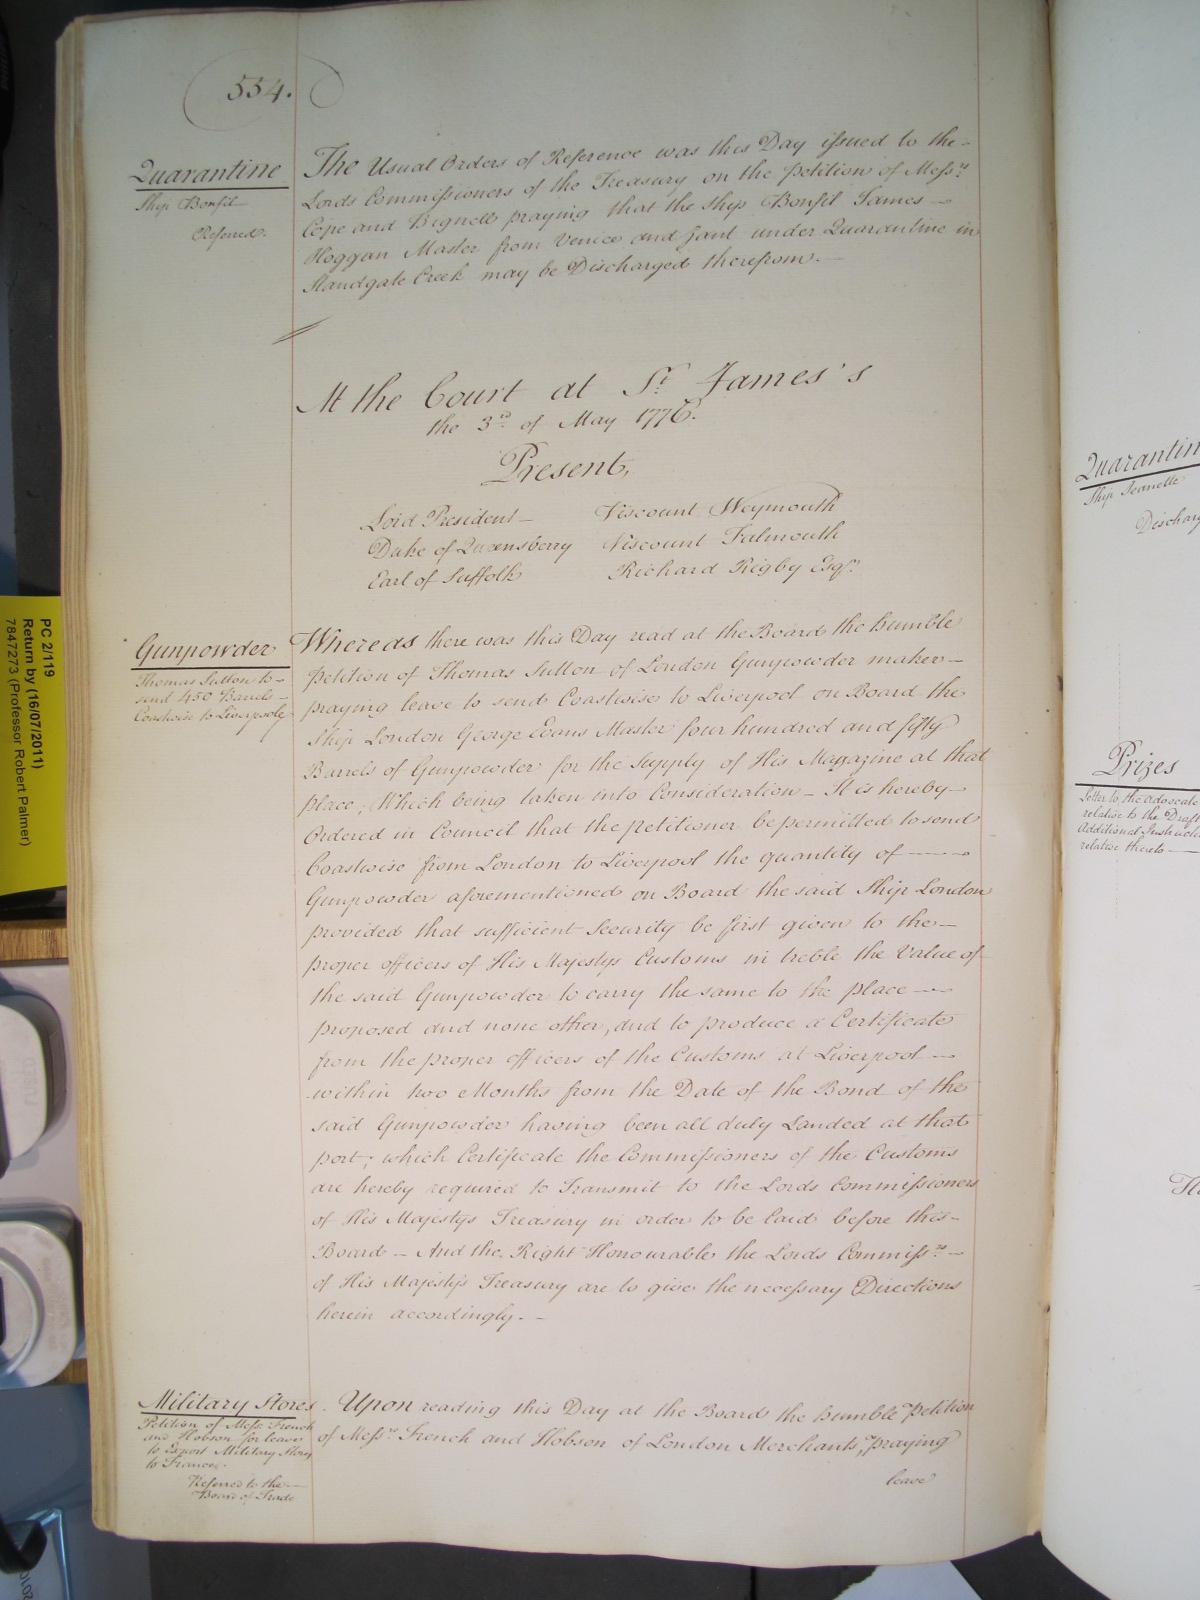 554.
Quarantine
Ship Bonfil
Referred.
The Usual Orders of Reference was this Day issued to the
Lords Commissioners of the Treasury on the Petition of Mess.rs
Cope and Bignell praying that the Ship Bonfil James
Hoggan Master from Venice and Zant under Quarantine in
Standgate Creek may be Discharged therefrom.
At the Court at St. James's
the 3.d of May 1776.
Present,
Lord President Viscount Weymouth
Duke of Queensberry Viscount Falmouth
Earl of Suffolk Richard Rigby Esqr.
Gunpowder
Thomas Sutton to
send 450 Barrels
Coastwise to Liverpoole
Whereas there was this Day read at the Board the humble
Petition of Thomas Sutton of London Gunpowder maker
praying leave to send Coastwise to Liverpool on Board the
Ship London George Evans Master four hundred and fifty
Barrels of Gunpowder for the Supply of His Magazine at that
place, Which being taken into Consideration - It is hereby
Ordered in Council that the Petitioner be permitted to send
Coastwise from London to Liverpool the quantity of
Gunpowder aforementioned on Board the said Ship London
provided that sufficient Security be first given to the
proper officers of His Majestys Customs in treble the Value of
the said Gunpowder to carry the same to the place
proposed and none other, and to produce a Certificate
from the proper officers of the Customs at Liverpool
within two Months from the Date of the Bond of the
said Gunpowder having been all duly Landed at that
port; which Certificate the Commissioners of the Customs
are hereby required to Transmit to the Lords Commissioners
of His Majestys Treasury in order to be laid before this
Board - And the Right Honourable the Lords Commiss.rs
of His Majestys Treasury are to give the necessary Directions
herein accordingly.
Military Stores
Petition of Mess. French
and Hobson for leave
to Export Military Stores
to France.
Referred to the
Board of Trade
Upon reading this Day at the Board the humble Petition
of Mess.rs French and Hobson of London Merchants, praying
leave
PC 2/119
Return by (16/07/2011)
7847273 (Professor Robert Palmer)
Quarantin
Ship Jeanette
Discharg
Prizes
Letter to the Advocate
relative to the Draft
Additional Instructi
relative thereto